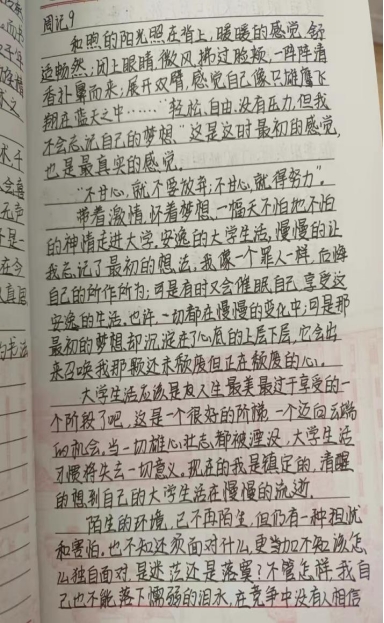 周记9
和煦的阳光照在背上，暖暖的感觉，舒
适畅然；闭上眼睛，微风拂过脸颊，一阵阵清
香扑鼻而来；展开双臂，感觉自己像只雄鹰飞
翔在蓝天之中……"轻松、自由、没有压力，但我
不会忘记自己的梦想"这是这时最初的感觉，
也是最真实的感觉。
"不甘心，就不要放弃；不甘心，就得努力"。
带着激情，怀着梦想、一幅天不怕地不怕
的神情走进大学，安逸的大学生活，慢慢的让
我忘记了最初的想法，我像一个罪人一样，后悔
自己的所作所为；可是有时又会催眠自己，享受这
安逸的生活。也许，一切都在慢慢的变化中；可是那
最初的梦想却沉淀在了心底的上层下层，它会出
来召唤我那颗还未颓废但正在颓废的心。
大学生活应该是友人生最美最过于享受的一
个阶段了吧，这是一个很好的阶梯，一个迈向云端
的机会。当一切雄心壮志都被湮没，大学生活
习惯将失去一切意义。现在的我是镇定的，清醒
的想到自己的大学生活在慢慢的流逝。
陌生的环境，已不再陌生，但仍有一种担忧
和害怕，也不知还须面对什么，更当加不知该怎
么独自面对，是迷茫还是落寞？不管怎样，我自
己也不能落下懦弱的泪水，在竞争中没有人相信